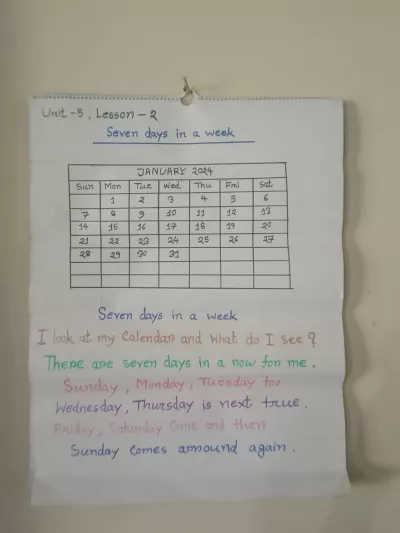 Unit-5, Lesson-2
Seven days in a week
JANUARY 2024
Sun Mon Tue Wed Thu Fri Sat
1 2 3 4 5 6
7 8 9 10 11 12 13
14 15 16 17 18 19 20
21 22 23 24 25 26 27
28 29 30 31
Seven days in a week
I look at my Calendar and what do I see?
There are seven days in a row for me.
Sunday, Monday, Tuesday too
Wednesday, Thursday is next true.
Friday, Saturday come and then
Sunday comes around again.